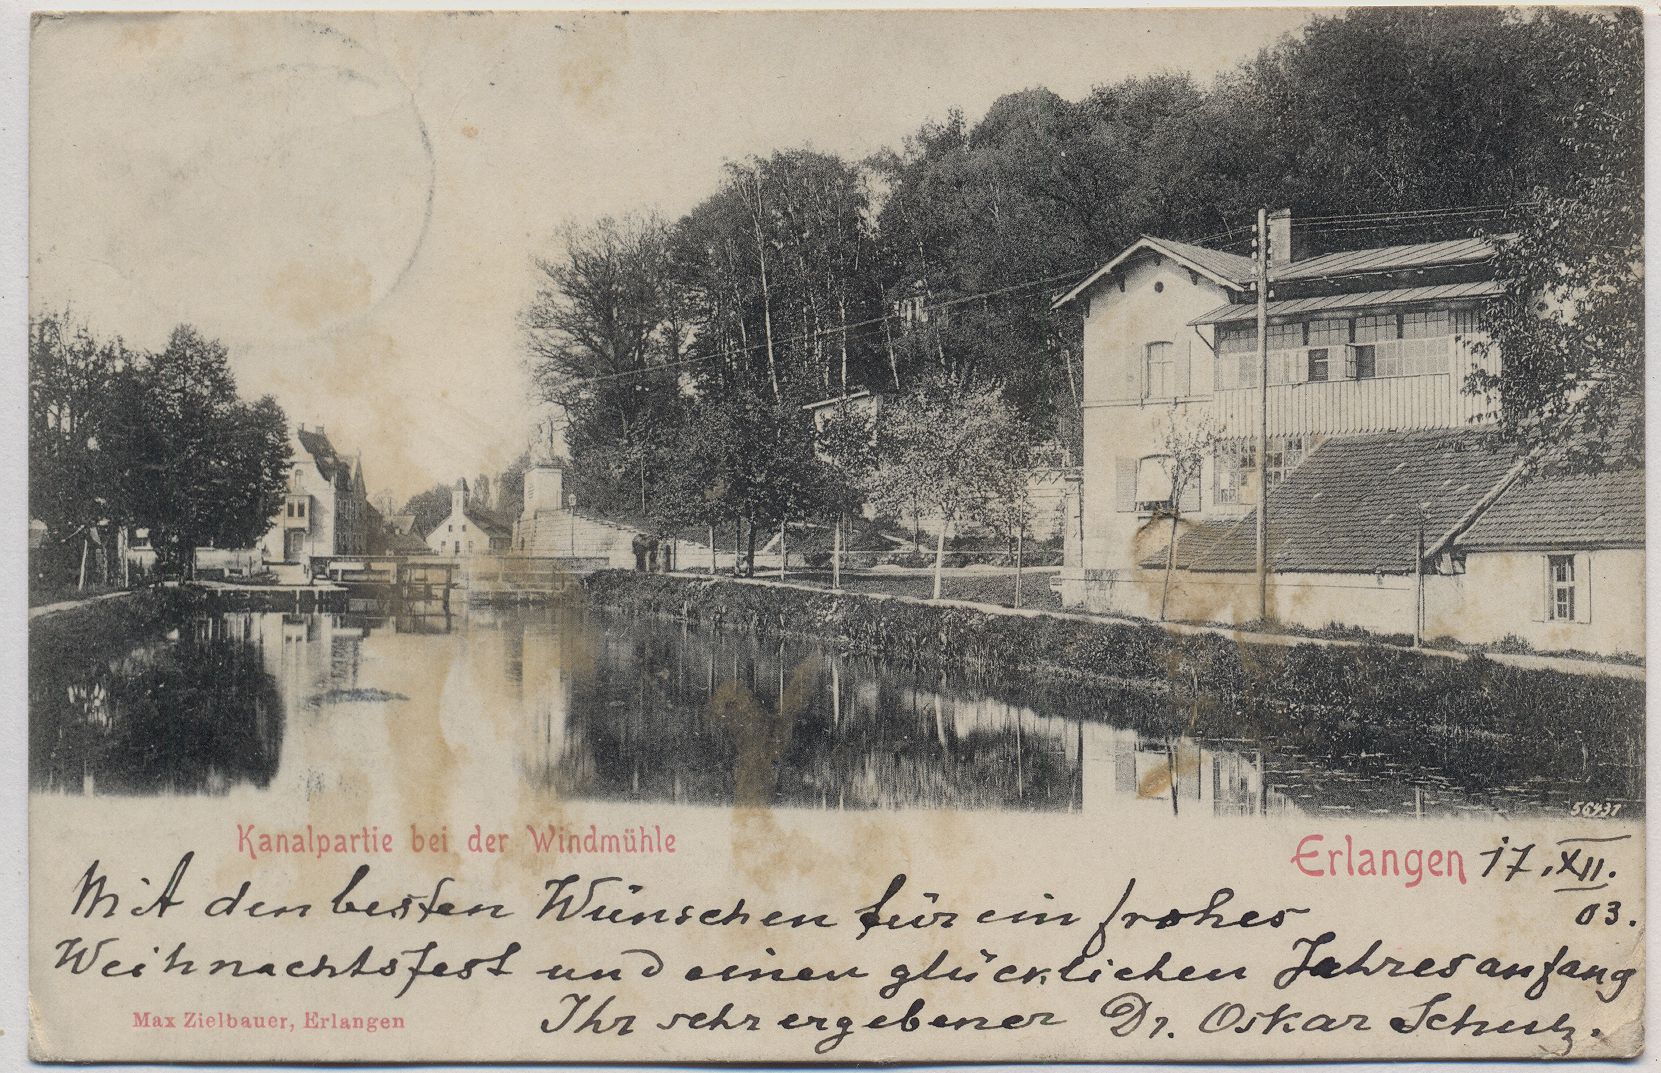 56431
Kanalpartie bei der Windmühle
Erlangen 17. XII.
03.
Mit den besten Wünschen für ein frohes
Weihnachtsfest und einen glücklichen Jahresanfang
Ihr sehr ergebener Dr. Oskar Schulz.
Max Zielbauer, Erlangen